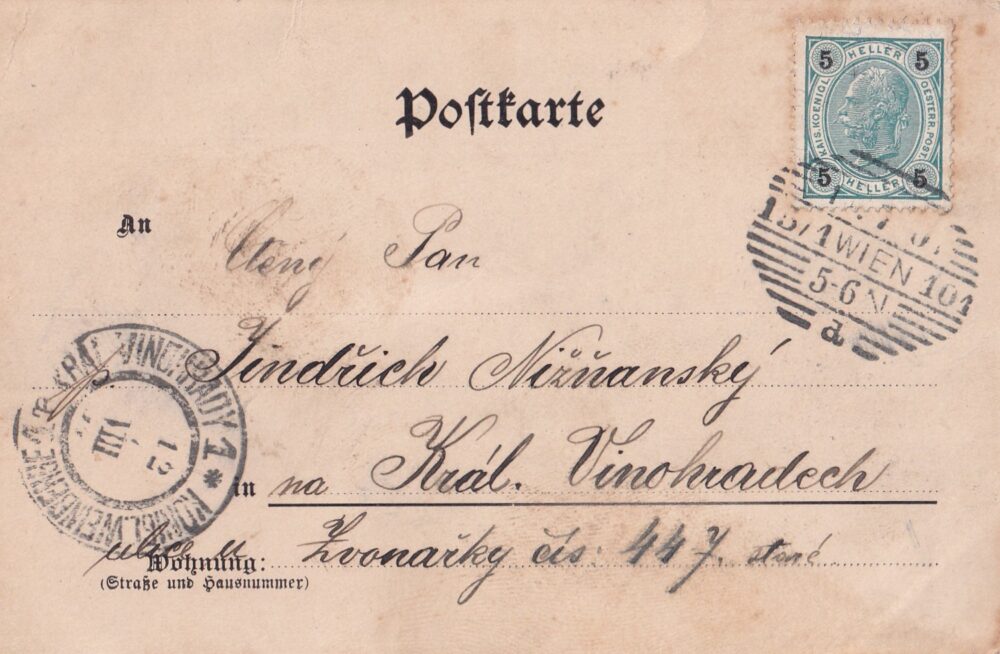 Postkarte
5 HELLER 5
KAIS. KOENIGL. OESTERR. POST.
5 HELLER 5
An
Ctený Pan
13/1 WIEN 101
5-6 N
a
Jindřich Nižňanský
in na Král. Vinohradech
KRÁL. VINOHRADY 1 *
VIII
ulice u Zvonařky čís: 447. staré
Wohnung:
(Straße und Hausnummer)